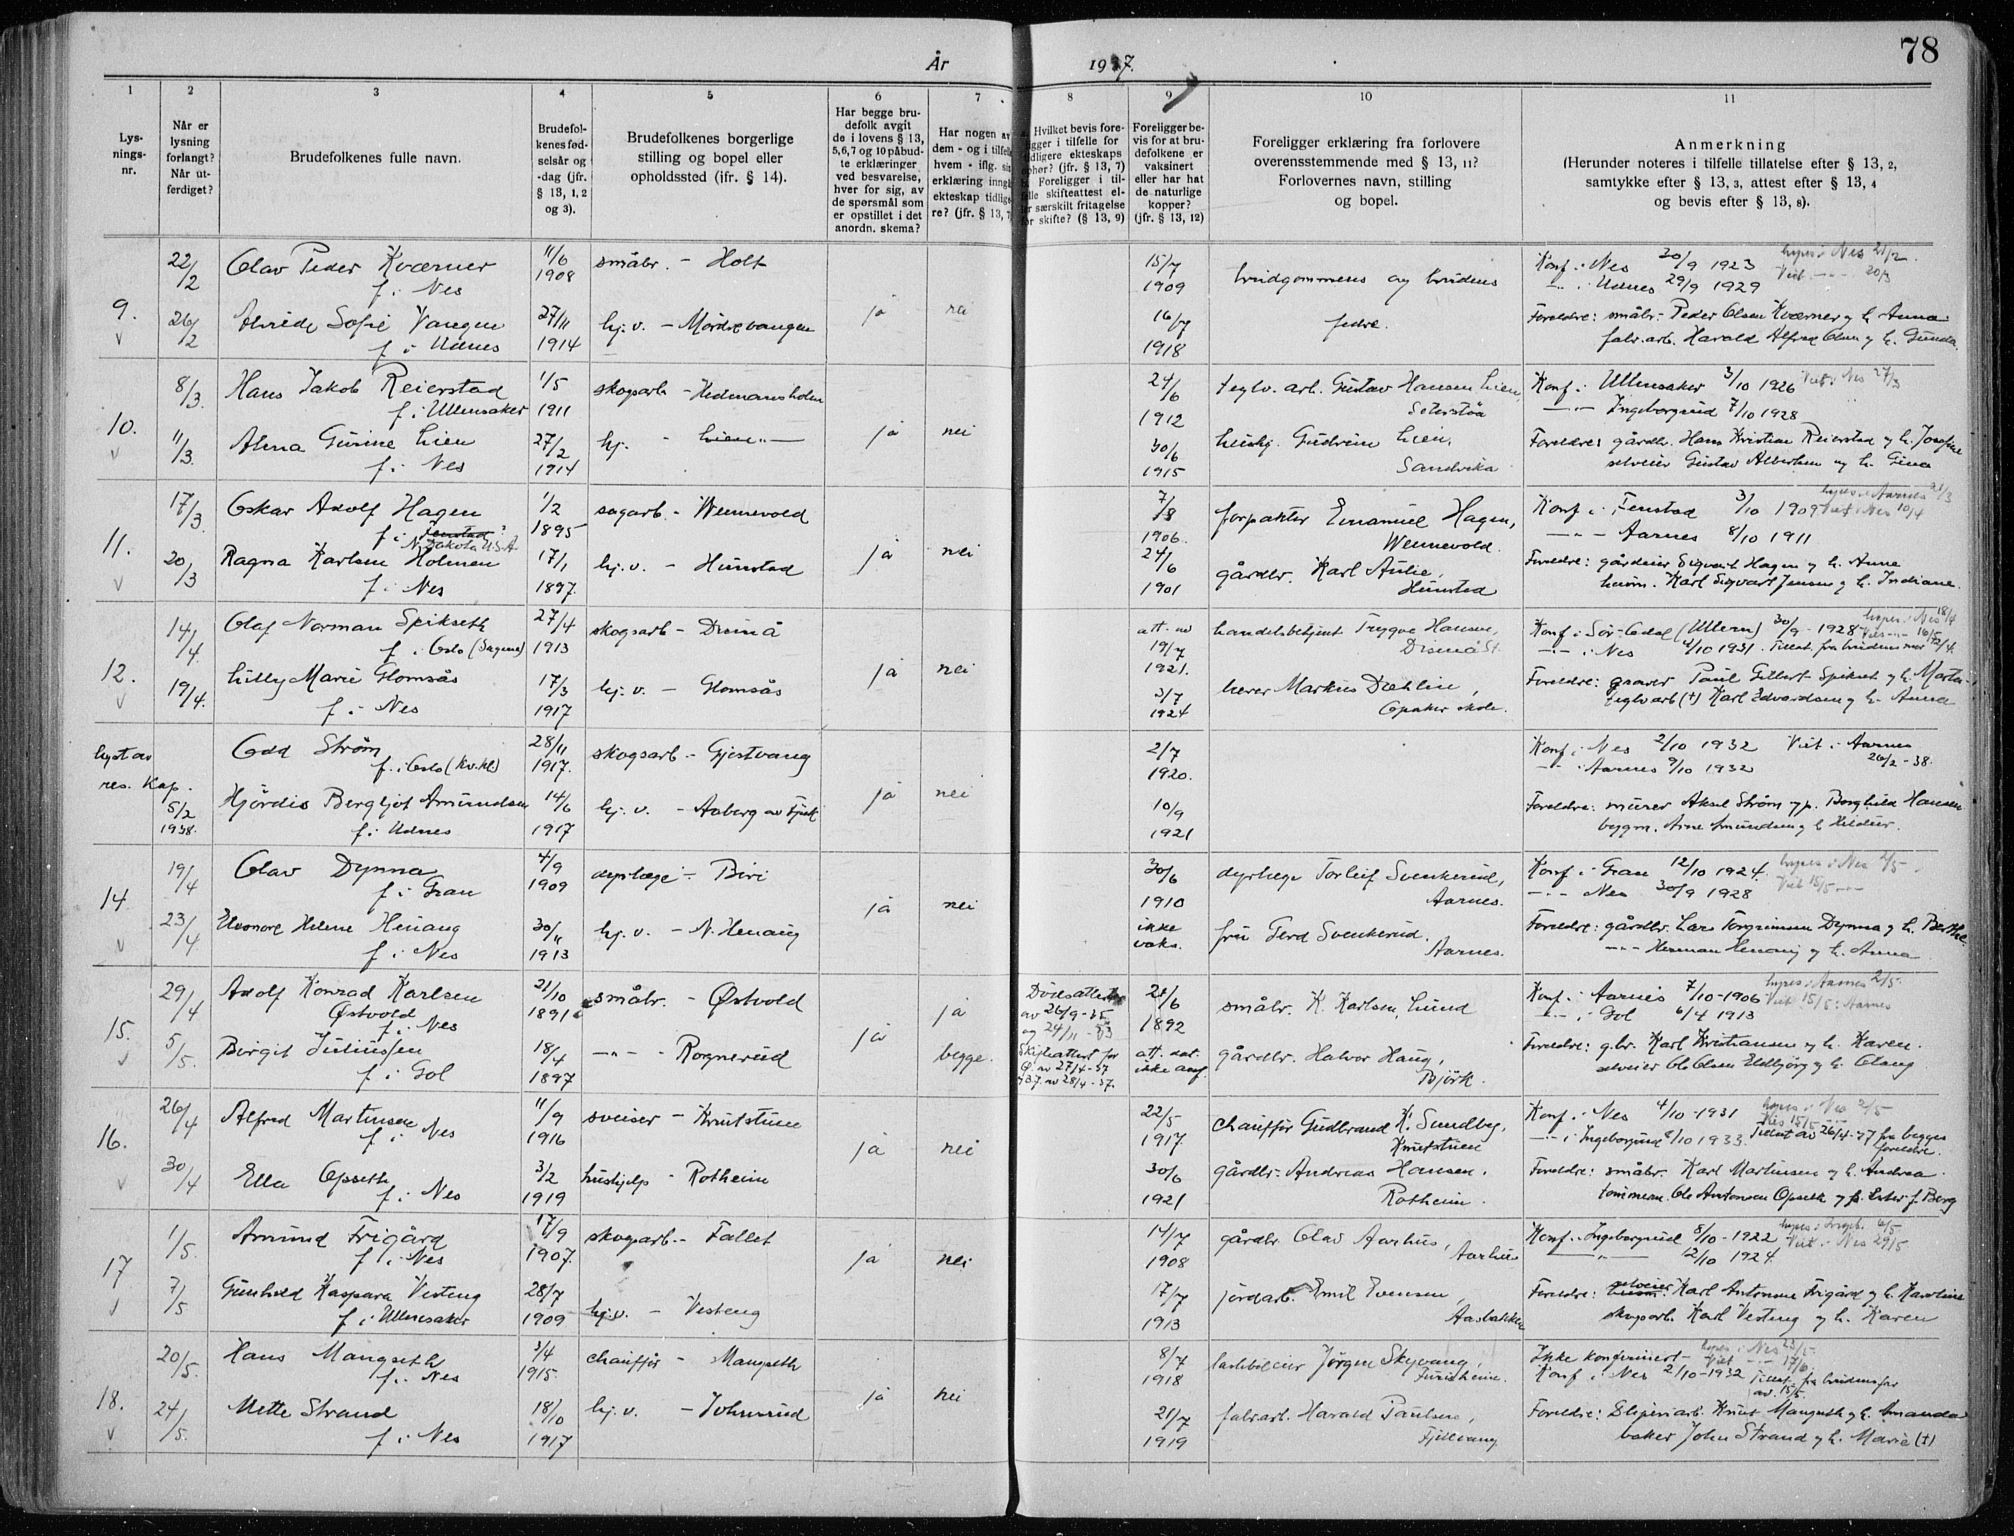 78
År 1937.
1 2 3 4 5 6 7 8 9 10 11
Lys-
nings-
nr.
Når er
lysning
forlangt?
Når ut-
ferdiget?
Brudefolkenes fulle navn.
Brudefol-
kenes fød-
selsår og
-dag (jfr.
§ 13, 1, 2
og 3).
Brudefolkenes borgerlige
stilling og bopel eller
opholdssted (ifr. § 14).
Har begge bru-
defolk avgit
de i lovens § 13,
5,6,7 og 10 påbud-
te erklæringer
ved besvarelse,
hver for sig, av
de spørsmål som
er opstillet i det
anordn. skema?
Har nogen av
dem - og i tilfelle
hvem - iflg. sin
erklæring inngå
ekteskap tidlige-
re? (jfr. § 13, 7
Hvilket bevis fore-
ligger i tilfelle for
tidligere ekteskaps
ophør? (jfr. § 13, 7)
b. Foreligger i til-
felle skifteattest el-
ler særskilt fritagelse
for skifte? (§ 13, 9)
Foreligger be-
vis for at bru-
defolkene er
vaksinert
eller har hat
de naturlige
kopper?
(jfr. § 13, 12)
Foreligger erklæring fra forlovere
overensstemmende med § 13, 11?
Forlovernes navn, stilling
og bopel.
Anmerkning
(Herunder noteres i tilfelle tillatelse efter § 13, 2,
samtykke efter § 13, 3, attest efter § 13, 4
og bevis efter § 13, 8).
9. 22/2 Olav Peder Kværner 11/6 småbr. - Holt 15/7 Konf. i Nes 30/9 1923 lyses i Nes 21/2
f. i Nes 1908 1909 brudgommens og brudens —"— i Udnes 29/9 1929 Viet —"— 20/3
26/2 Sofie Vangen 27/11 hj. v. - Mordrevangen ja nei 16/7 fedre. Foreldre: småbr. Peder Olsen Kværner og h. Anna
f. i Udnes 1914 1918 fabr.arb. Harald Alfred Olsen og h. Gunda.
10. 8/3. Hans Jakob Reierstad 1/5 skogsarb - Hedmansholen 24/6 teglv. arb. Gustav Hansen Lien, Konf. i Ullensaker 3/10 1926 Viet i Nes 27/3
f. i Ullensaker 1911 1912 —"— Ingeborgrud 7/10 1928
11/3. Alma Gurine Lien 27/2 hj. - Lien —"— ja nei 30/6 hushj. Gudrun Lien, Foreldre: gårdbr. Hans Kristian Reierstad og h. Josefine
f. i Nes 1914 1915 Sandvika selveier Gustav Albertsen og h. Gina
11. 17/3 Oskar Adolf Hagen 1/2 sagarb. - Wennevold 7/8 forpakter Emanuel Hagen, Konf. i Fenstad 3/10 1909 lyses i Aarnes 21/3
f. i Fenstad 1895 1906. Wennevold. —"— Aarnes 8/10 1911 Viet i Nes 10/4
N. Dakota U.S.A.
20/3 Ragna Karlsen Holmen 17/1 hj. v. - Hunstad ja nei 24/6 gårdbr. Karl Aulie, Foreldre: gårdeier Sigvart Hagen og h. Anne
f. i Nes 1897. 1901 Hunstad husm. Karl Sigvart Jensen og h. Indiane.
12. 14/4. Olaf Norman Spikseth 27/4 skogsarb - Disenå att. av handelsbetjent Trygve Hansen, Konf. i Sør-Odal (Ullern) 30/9 - 1928 lyses i Nes 18/4
f. i Oslo (Sagene) 1913 19/7 1921. Disenå St. —"— i Nes 4/10 1931. Tillat. fra brudens mor
19/4. Lilly Marie Glomsås 17/3 hj. v. - Glomsås ja nei 3/7 lærer Markus Dæhlin, Foreldre: graver Paul Gilbert Spikset og h. Marta
f. i Nes 1917 1924 Opaker skole. teglv.arb (†) Karl Edvardsen og h. Anna
lyst av
res. Kap. Odd Strøm 28/11 skogsarb - Gjestvang 2/7 Konf. i Nes 2/10 1932 Viet i Aarnes
f. i Oslo 1917. 1920. —"— i Aarnes 9/10 1932 26/2 - 38.
5/2 Hjördis Bergljot Amundsen 14/6 hj. v. - Aaberg ja nei 10/9 Foreldre: murer Aksel Strøm og p. Borghild Hansen
1938. f. i Udnes 1917 1921 bygm. Arne Amundsen og h. Hildur.
14 19/4 Olav Dynna 4/9 dyrlæge - Biri 30/6 dyrlæge Torleif Svenkerud, Konf. i Gran 12/10 1924. lyses i Nes 2/5
f. i Gran 1909 1910 Aarnes. —"— Nes 30/9 1928 Viet 15/5 —"—
23/4 Eleonore Helene Henang 30/11 hj. v. - N. Henang ja nei ikke fru Gerd Svenkerud. Foreldre: gårdbr. Lars Torgrimsen Dynna og h. Berthe.
f. i Nes 1913 vaks. Aarnes. —"— Herman Henang og h. Anna
15. 29/4 Adolf Konrad Karlsen 21/10 småbr. - Østvold ja Dødsattester 28/6 småbr. K. Karlsen, Lund Konf. i Aarnes 7/10 - 1906 lyses i Aarnes 2/5
Østvold f. i Nes 1891 av 26/9 - 35 1892 —"— i Gol 6/4 1913 Viet 15/5 i Aarnes
og 24/11 - 33
5/5. Birgit Juliussen 18/4 —"— - Rognerud ja begge. Skifteattest for att. dat. gårdbr. Halvor Haug, Foreldre: g.br. Karl Kristiansen og h. Karen.
f. i Gol 1897 Ø. av 27/4 - 37 ikke Bjørk. selveier Ole Olsen og h. Olaug
B.J. av 28/4 - 37.
16. 26/4 Alfred Martinsen 11/9 sveiser - Knutstuen 22/5 chauffør Gudbrand K. Sundby, Konf. i Nes 4/10 - 1931 lyses i Nes 2/5
f. i Nes 1916 1917 Knutstuen —"— i Ingeborgrud 8/10 1933. Tillat. av 26/4 - 37 fra begges foreldre.
30/4 Ella Opseth 3/2 hushjelp - Rotheim ja nei 30/6 gårdbr. Andreas Hansen. Foreldre: småbr. Karl Martinsen og h. Andrea
f. i Nes 1919 1921 Rotheim. tømmerm. Ole Antonsen Opseth og h. Ester f. Berg
17 1/5. Amund Frigård 17/9 skogsarb. - Fallet 14/7 gårdbr Olav Aarhus, Konf. i Ingeborgrud 8/10 - 1922 lyses i Ingeb. 6/5
f. i Nes 1907. 1908 Aarhus —"— 12/10 1924. Viet i Nes 29/5
7/5 Gunhild Kaspara Vesteng 28/7 hj.v. - Vesteng ja nei 17/7 jordarb. Emil Evensen, Foreldre: selveier Karl Antonsen Frigård og h. Karoline
f. i Ullensaker 1909 1913 Aasbakken skogsarb. Karl Vesteng og h. Karen
18. 20/5. Hans Mangseth 3/4 chauffør - Mangseth 8/7 lastebileier Jørgen Skyvang, Ikke konfirmert - lyses i Nes 23/5.
f. i Nes 1915. 1918 Furuheim. Konf i Nes 2/10 - 1932 Viet —"— 17/6.
Tillat. fra brudens far av. 15/5.
24/5. Mette Strand 18/10 hj. v. - Johnsrud ja nei 21/7 fabr.arb. Harald Paulsen, Foreldre: Sliperiarb. Knut Mangseth og h. Amanda
f. i Nes 1917 1919 Fjellvang baker John Strand og h. Marie (†)